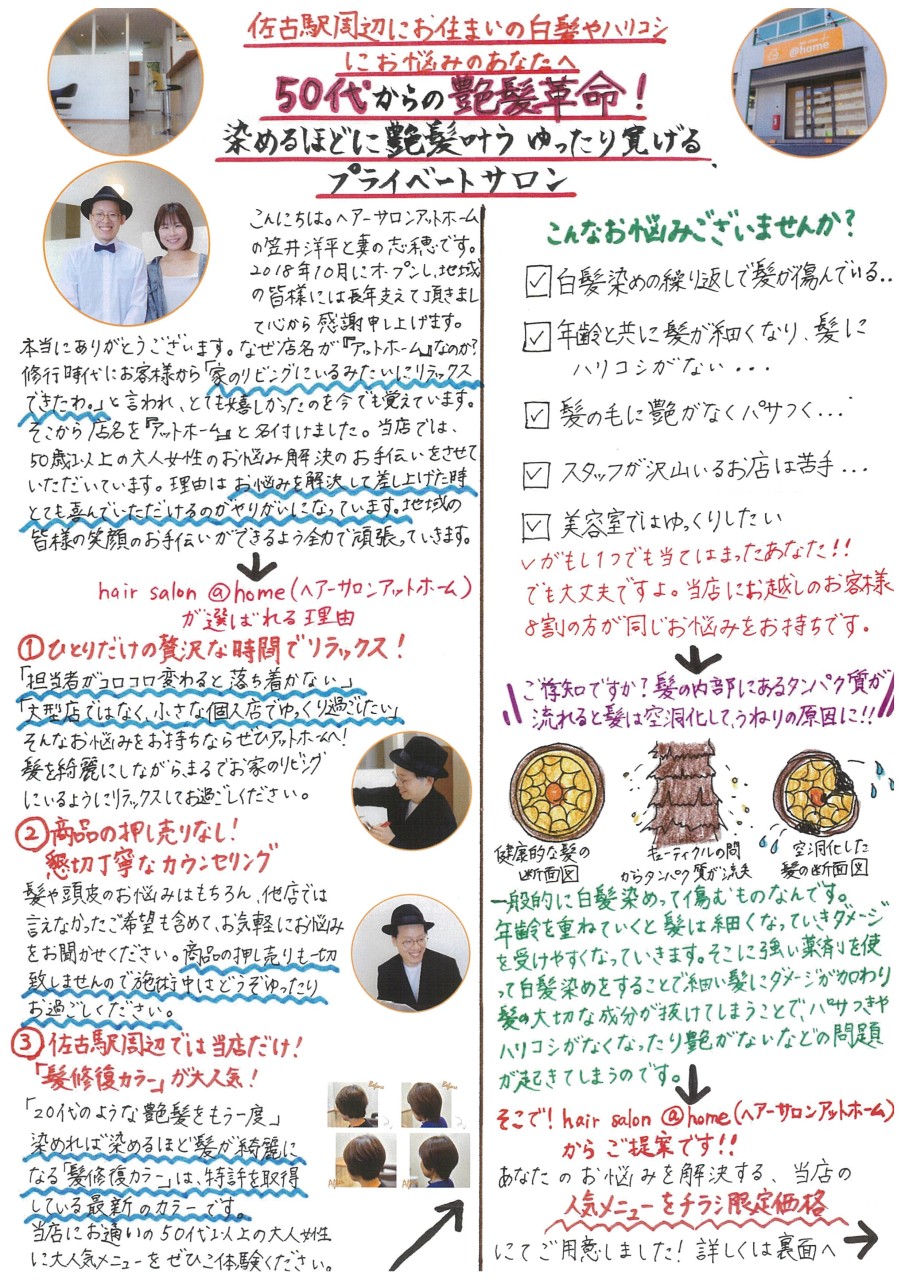 佐古駅周辺にお住まいの白髪やハリコシ
にお悩みのあなたへ
50代からの艶髪革命!
染めるほどに艶髪叶う ゆったり寛げる
プライベートサロン
@home
こんにちは。ヘアーサロンアットホーム
の笠井洋平と妻の志穂です。
2018年10月にオープンし、地域
の皆様には長年支えて頂きまし
て心から感謝申し上げます。
本当にありがとうございます。なぜ店名が『アットホーム』なのか?
修行時代にお客様から「家のリビングにいるみたいにリラックス
できたわ。」と言われ、とても嬉しかったのを今でも覚えています。
そこから店名を『アットホーム』と名付けました。当店では、
50歳以上の大人女性のお悩み解決のお手伝いをさせて
いただいています。理由はお悩みを解決して差し上げた時
とても喜んでいただけるのがやりがいになっています。地域の
皆様の笑顔のお手伝いができるよう全力で頑張っていきます。
hair salon @home(ヘアーサロンアットホーム)
が選ばれる理由
①ひとりだけの贅沢な時間でリラックス!
「担当者がコロコロ変わると落ち着かない」
「大型店ではなく、小さな個人店でゆっくり過ごしたい」
そんなお悩みをお持ちならぜひアットホームへ!
髪を綺麗にしながら、まるでお家のリビング
にいるようにリラックスしてお過ごしください。
②商品の押し売りなし!
懇切丁寧なカウンセリング
髪や頭皮のお悩みはもちろん、他店では
言えなかったご希望も含めて、お気軽にお悩み
をお聞かせください。商品の押し売りも一切
致しませんので施術中はどうぞゆったり
お過ごしください。
③佐古駅周辺では当店だけ!
「髪修復カラー」が大人気!
「20代のような艶髪をもう一度」
染めれば染めるほど髪が綺麗に
なる「髪修復カラー」は、特許を取得
している最新のカラーです。
当店にお通いの50代以上の大人女性
に大人気メニューをぜひご体験ください。
Before
Before
こんなお悩みございませんか?
白髪染めの繰り返しで髪が傷んでいる..
年齢と共に髪が細くなり、髪に
ハリコシがない...
髪の毛に艶がなくパサつく...
スタッフが沢山いるお店は苦手...
美容室ではゆっくりしたい
✓がもし1つでも当てはまったあなた!!
でも大丈夫ですよ。当店にお越しのお客様
8割の方が同じお悩みをお持ちです。
ご存知ですか?髪の内部にあるタンパク質が
流れると髪は空洞化して、うねりの原因に!!
健康的な髪の
断面図
キューティクルの間
からタンパク質が流失
空洞化した
髪の断面図
一般的に白髪染めって傷むものなんです。
年齢を重ねていくと髪は細くなっていきダメージ
を受けやすくなっていきます。そこに強い薬剤を使
って白髪染めをすることで細い髪にダメージが加わり
髪の大切な成分が抜けてしまうことで、パサつきや
ハリコシがなくなったり艶がないなどの問題
が起きてしまうのです。
そこで!hair salon @home(ヘアーサロンアットホーム)
からご提案です!!
あなたのお悩みを解決する、当店の
人気メニューをチラシ限定価格
にてご用意しました!詳しくは裏面へ